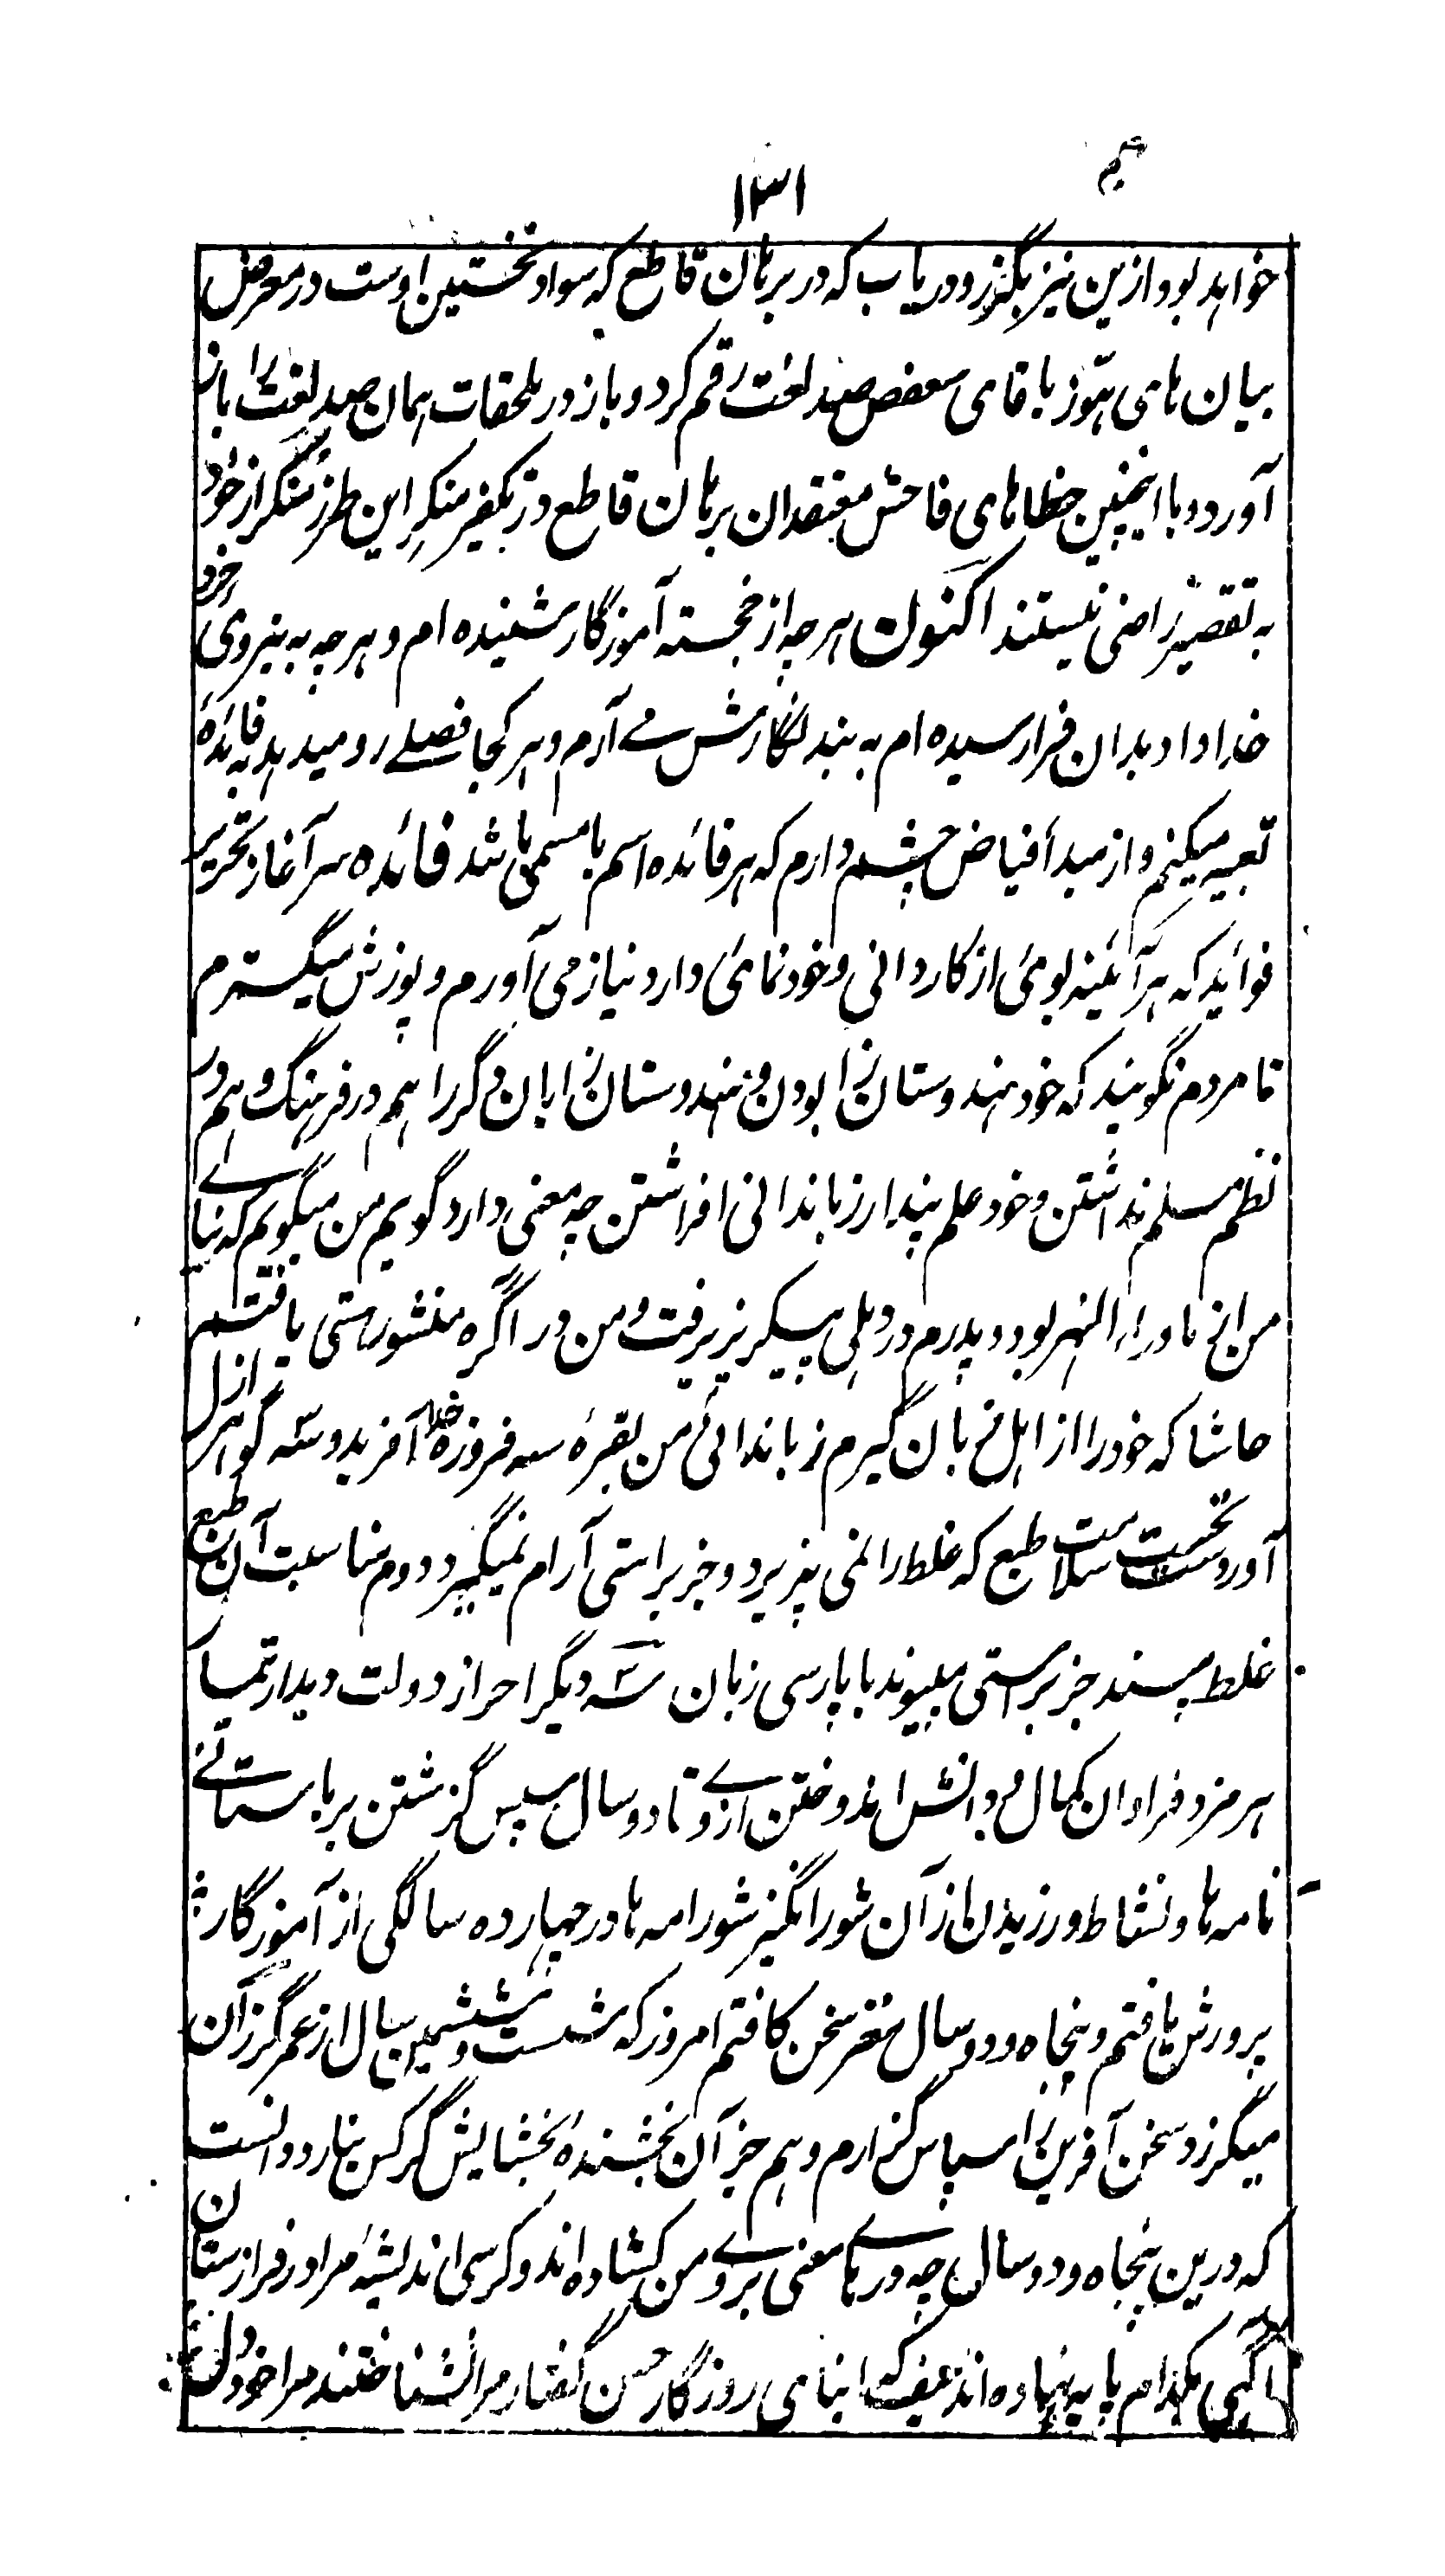 ۱۳۱
خواهد بود و ازین نیز بگذر و دریاب که در برهان قاطع که سواد نخستین اوست در معرض
بیان های هوز با قای سعفص صد لغت رقم کرد و باز در ملحقات همان صد لغت را باز
آورد و با اینچنین خطاهای فاحش معتقدان برهان قاطع در تکفیر منکر این طرز منکر از خود
به تقصیر راضی نیستند اکنون هر چه از خجسته آموزگار شنیده ام و هر چه به نیروی خرد
خداداد بدان فرا رسیده ام به بند نگارش می آرم و هر کجا فصلے رو میدهد به فائدهٔ
تعبیر میکنم و از مبدأ فیاض چشم دارم که هر فائده اسم با مسمی باشد فائده سر آغاز تحریر
فوائد که هر آئینه بوئی از کاردانی و خودنمائی دارد نیاز می آورم و پوزش میگسترم
تا مردم نگویند که خود هندوستان زا بودن و هندوستان زایان دگر را هم در فرهنگ و هم در
نظم مسلم نداشتن و خود علم پندار زباندانی افراشتن چه معنی دارد گویم من میگویم که نیاے
من از ماوراءالنهر بود و پدرم در دهلی پیکر پذیرفت و من در آگره منشور هستی یافتم
حاشا که خود را از اهل زبان گیرم زباندانی من بفرهٔ سه فروزهٔ خدا آفرید و سه گوهر ازل
آورد نخست سلامت طبع که غلط را نمی پذیرد و جز براستی آرام نمیگیرد دوم مناسبت آن طبع
غلط پسند جز براستی بپیوند با پارسی زبان سه دیگر احراز دولت دیدار تیمسار
هرمزد فراوان کمال و دانش اندوختن ازوے تا دو سال سپس گزشتن بر باستانے
نامه ها و نشاط ورزیدن از آن شورانگیز شورامه ها در چهارده سالگی از آموزگار
پرورش یافتم و پنجاه و دو سال مغز سخن کافتم امروز که شست و ششمین سال از عمر گرزان
میگزرد سخن آفرین را سپاس گزارم و هم جز آن بخشندهٔ بخشایش گر کس نیارد دانست
که درین پنجاه و دو سال چه درهاے معنی بروے من کشاده اند و کرسی اندیشهٔ مرا در فرازستان
آگهی بکدام پایه نهاده اند حیف که ابنای روزگار حسن گفتار مرا نشناختند مرا خود دل